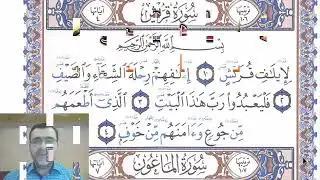 سُورَةُ قُرَيْشٍ
بِسْمِ اللَّهِ الرَّحْمَٰنِ الرَّحِيمِ
لِإِيلَافِ قُرَيْشٍ ١ إِۦلَافِهِمْ رِحْلَةَ الشِّتَاءِ وَالصَّيْفِ
٢ فَلْيَعْبُدُوا رَبَّ هَٰذَا الْبَيْتِ ٣ الَّذِي أَطْعَمَهُم
مِّن جُوعٍ وَءَامَنَهُم مِّنْ خَوْفٍ ٤
سُورَةُ الْمَاعُونِ